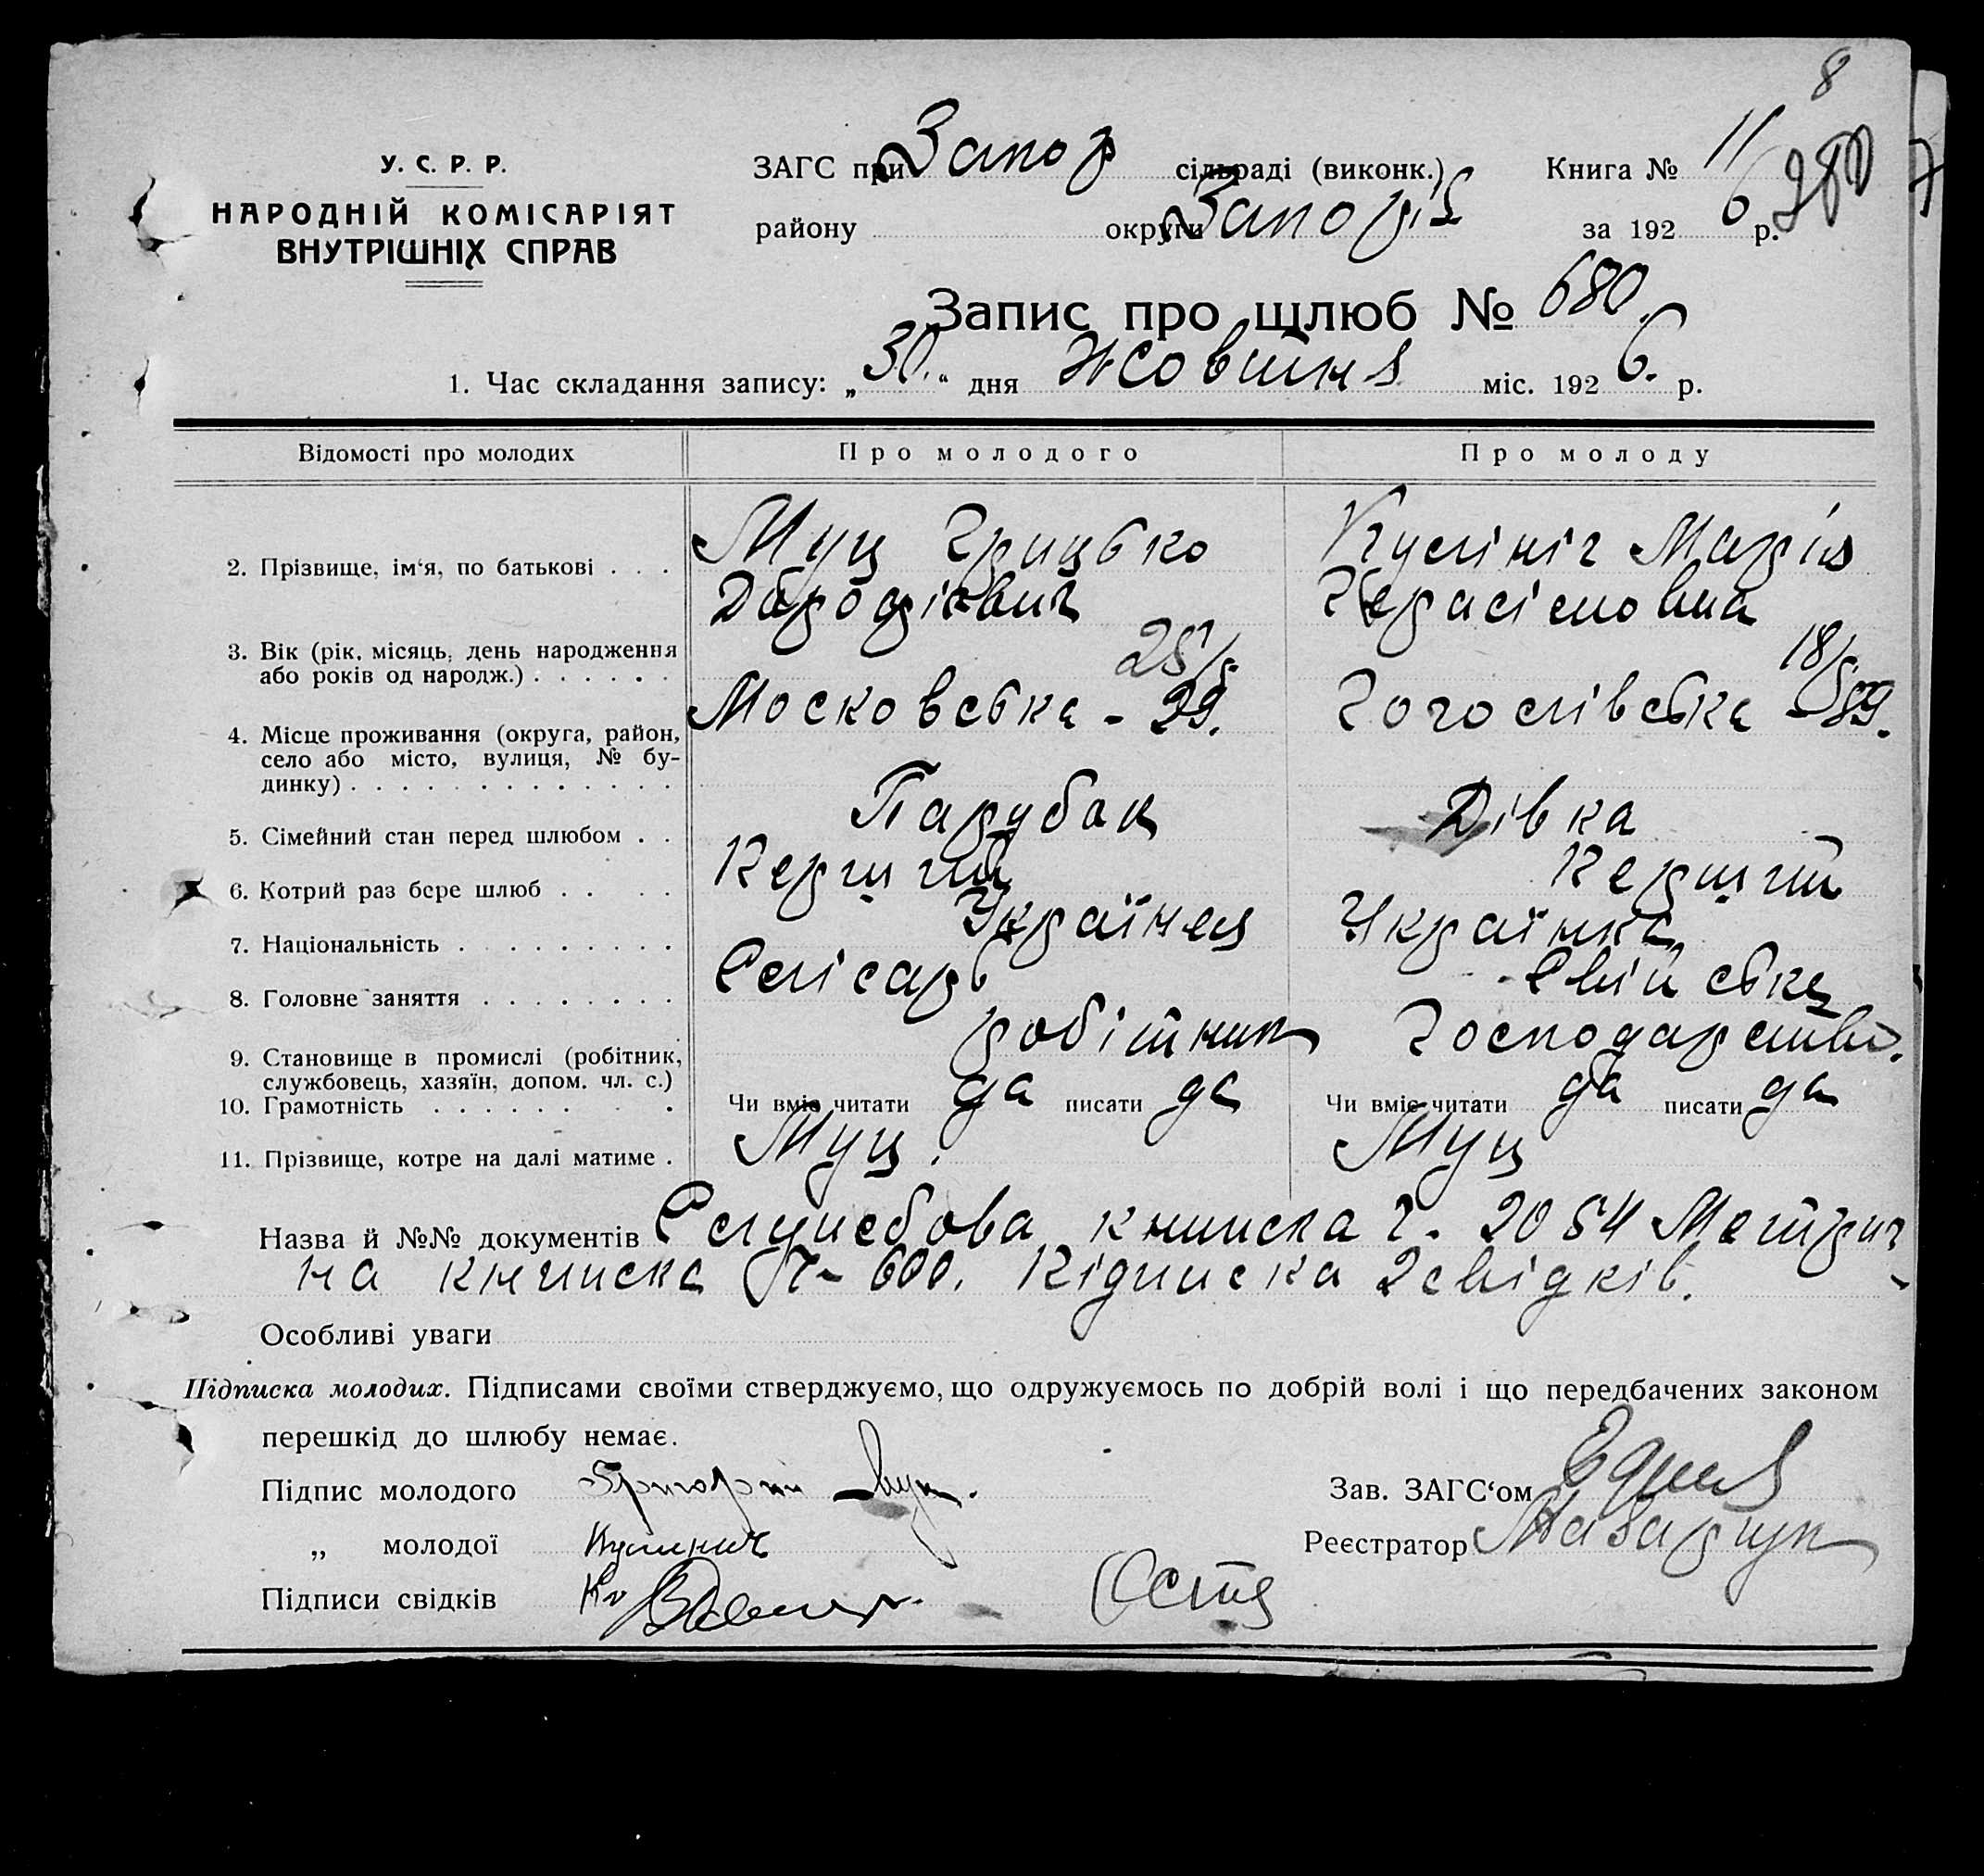 8
У. С. Р. Р.
НАРОДНІЙ КОМІСАРІЯТ
ВНУТРІШНІХ СПРАВ
ЗАГС при Запор сільраді (виконк.) Книга № 11
району округи Запоріз за 1926 р. 280
7
Запис про шлюб № 680.
1. Час складання запису: „30.“ дня Жовтня міс. 1926. р.
Відомості про молодих Про молодого Про молоду
2. Прізвище, ім‘я, по батькові . . . Муц Грицько Кулініч Марія
Дародіївич Герасімовна
3. Вік (рік, місяць, день народження або років од народж.) . . . . . . 25 18
4. Місце проживання (округа, район, село або місто, вулиця, № будинку) . . . . . . . . . . . . . . Московська - 29. Гоголівська - 89.
5. Сімейний стан перед шлюбом . . Парубок Дівка
6. Котрий раз бере шлюб . . . . Перший Перший
7. Національність . . . . . . . . . Українец Українка
8. Головне заняття . . . . . . . . Слісарь Свійське
9. Становище в промислі (робітник, службовець, хазяїн, допом. чл. с.) робітник Господарство.
10. Грамотність . . . . . . . . Чи вміє читати да писати да Чи вміє читати да писати да
11. Прізвище, котре на далі матиме . Муц. Муц
Назва й №№ документів Служебова книжка г. 2054 Метрич
на книжка 600. Підписка 2 свідків.
Особливі уваги
Підписка молодих. Підписами своїми стверджуємо, що одружуємось по добрій волі і що передбачених законом
перешкід до шлюбу немає.
Підпис молодого Григорій Муц. Зав. ЗАГС‘ом
„ молодої Кулинич Реєстратор Назарчук
Підписи свідків